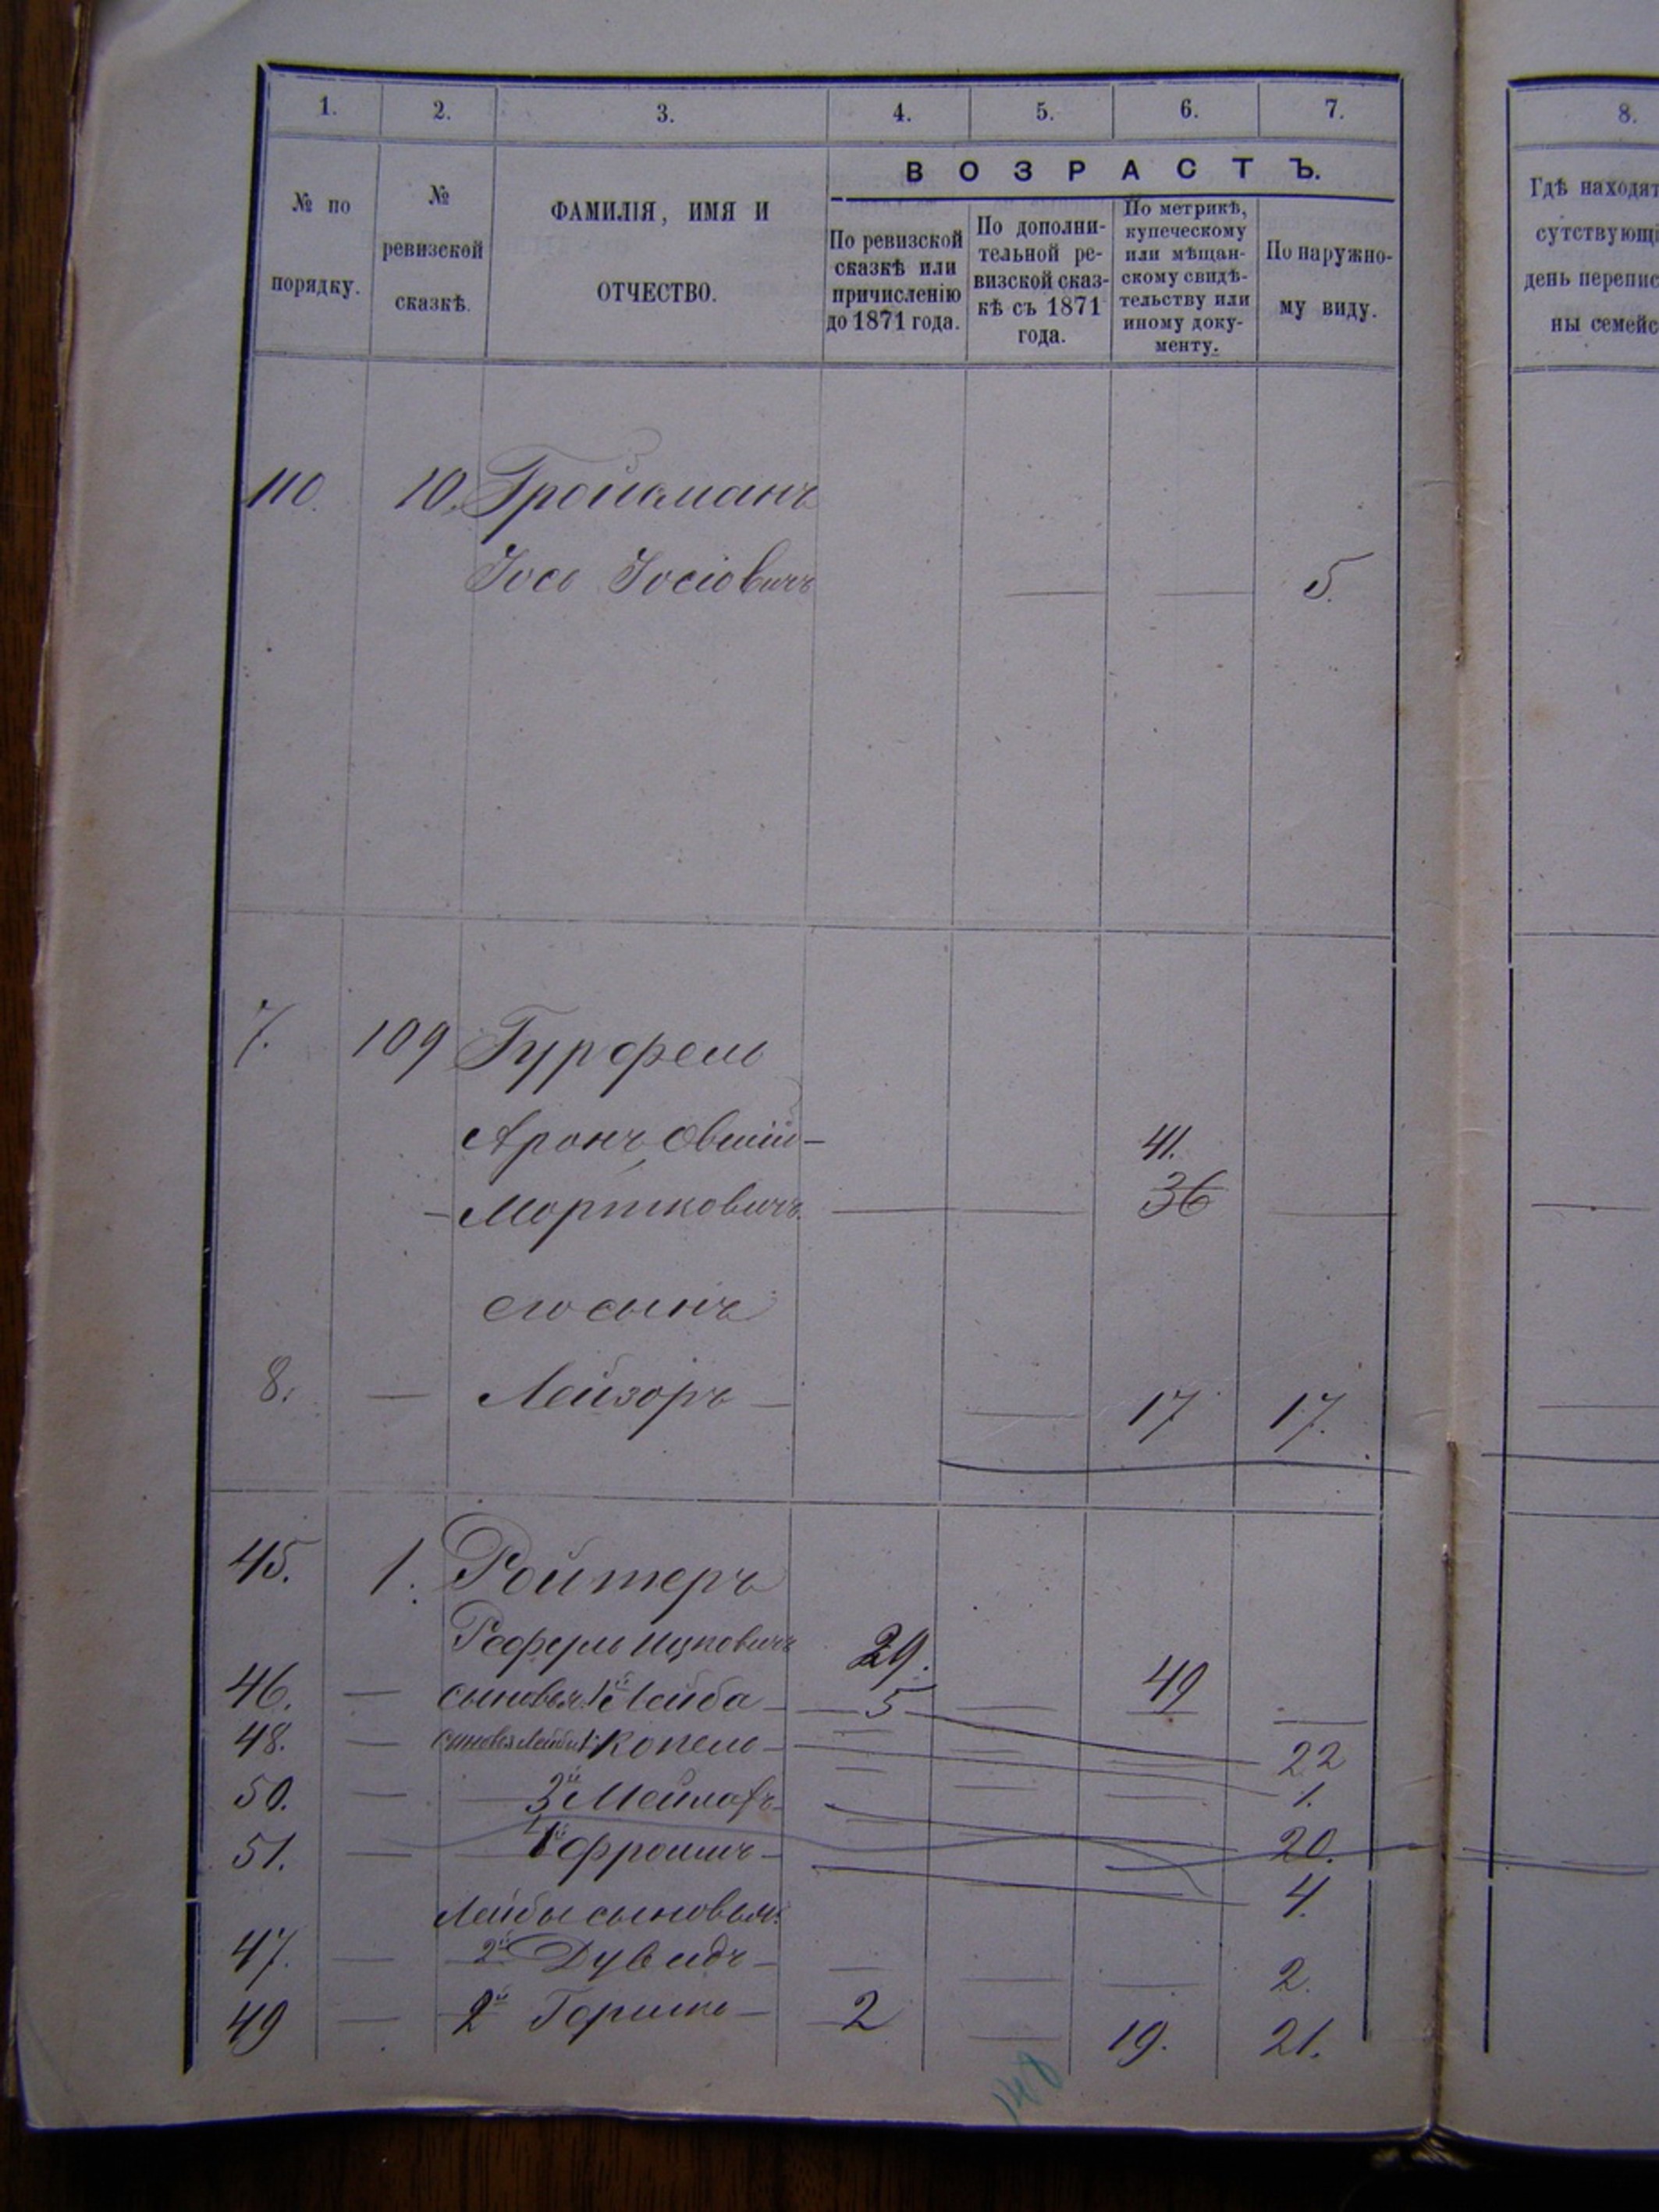 1. 2. 3. 4. 5. 6. 7.
8.
ВОЗРАСТЪ.
№ по
порядку.
№
ревизской
сказкѣ.
ФАМИЛІЯ, ИМЯ И
ОТЧЕСТВО.
По ревизской
сказкѣ или
причисленію
до 1871 года.
По дополни-
тельной ре-
визской сказ-
кѣ съ 1871
года.
По метрикѣ,
купеческому
или мѣщан-
скому свидѣ-
тельству или
иному доку-
менту.
По наружно-
му виду.
Гдѣ находят
сутствующі
день перепис
ны семейс
110. 10. Гройсманъ
Іось Іосіовичъ — — 5.
7. 109 Гурфель
Аронъ Овшій – 41.
– Мортковичъ — — 36 —
его сынъ
8. — Лейзоръ — — 17 17.
45. 1. Ройтеръ
Рефуль Ицковичъ 29. 49
46. — сыновья 1й Лейба — 5 — — 22
48. — сыновья Лейбы 1й Копель — 1.
50. — 3й Мейлахъ 20.
51. — 4й Фроимъ — 4.
Лейбы сыновья:
47. — 2й Дувидъ — — — — 2.
49 — 2й Гершко — 2 — 19. 21.